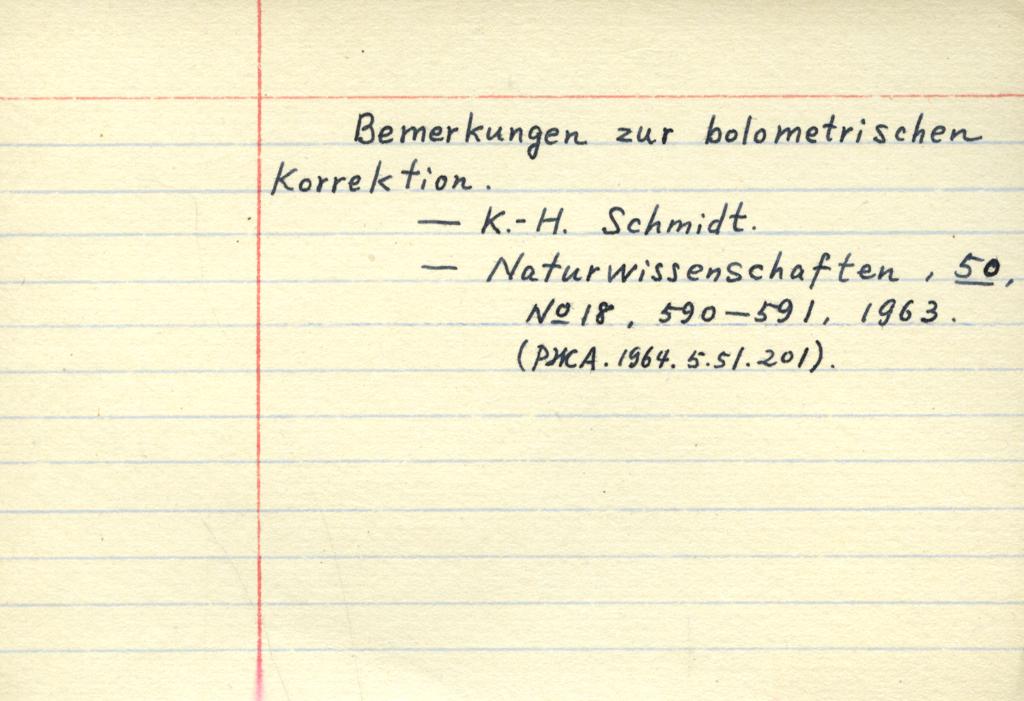 Bemerkungen zur bolometrischen
Korrektion.
— K.-H. Schmidt.
— Naturwissenschaften, 50,
№ 18, 590—591, 1963.
(РЖА. 1964. 5.51.201).